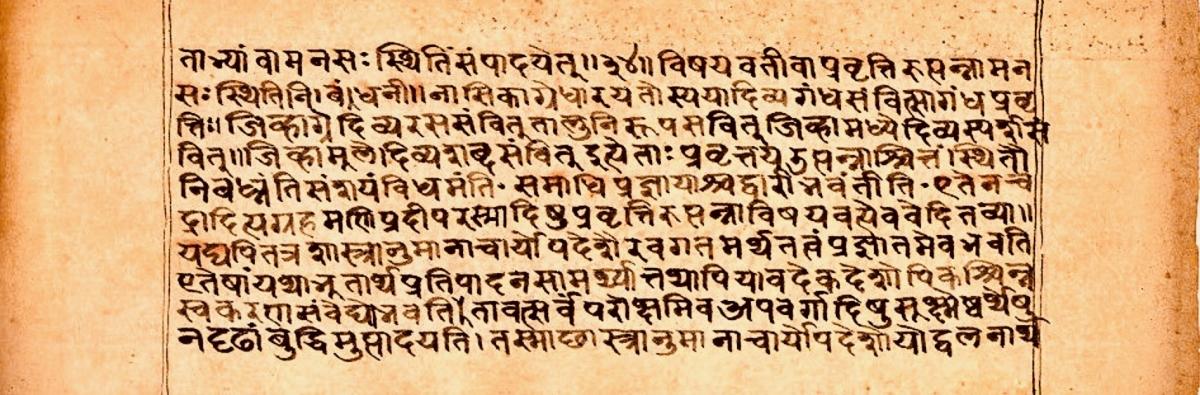 ताभ्यां वा मनसः स्थितिं संपादयेत्॥३४॥ विषयवती वा प्रवृत्तिरुत्पन्ना मन
सः स्थितिनिबंधनी॥ नासिकाग्रे धारयतोस्य या दिव्यगंधसंवित्सा गंधप्रवृ
त्तिः॥ जिव्हाग्रे दिव्यरससंवित् तालुनि रूपसंवित् जिव्हामध्ये दिव्यस्पर्शसं
वित्॥ जिव्हामुले दिव्यशब्दसंवित् इत्येताः प्रवृत्तय उत्पन्नाश्चित्तं स्थितौ
निबध्नंति संशयं विधमंति· समाधिप्रज्ञायाश्च द्वारीभवंतीति· एतेन चं
द्रादित्यग्रहमणिप्रदीपरस्मादिषु प्रवृत्तिरुत्पन्ना विषयवत्येव वेदितव्या॥
यद्यपि तत्र शास्त्रानुमानाचार्योपदेशैरवगतमर्थतत्वं प्रज्ञातमेव भवति
एतेषां यथानुतार्थप्रतिपादनसामर्थ्यात्तथापि यावदेकदेशोपि कश्चिन्न
स्वकरणसंवेद्यो भवति। तावत्सर्वं परोक्षमिव अपवर्गादिषु सुक्ष्मेष्वर्थेषु
न दृढां बुद्धिमुत्पादयति। तस्माछास्त्रानुमानाचार्योपदेशोयोद्वलनार्थ